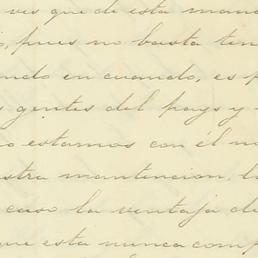 ves que de esta man
, pues no basta ten
ndo en cuando, es p
gentes del pays y
o estamos con él no
stra mantencion. la
caso la ventaja de
que esta nunca comp